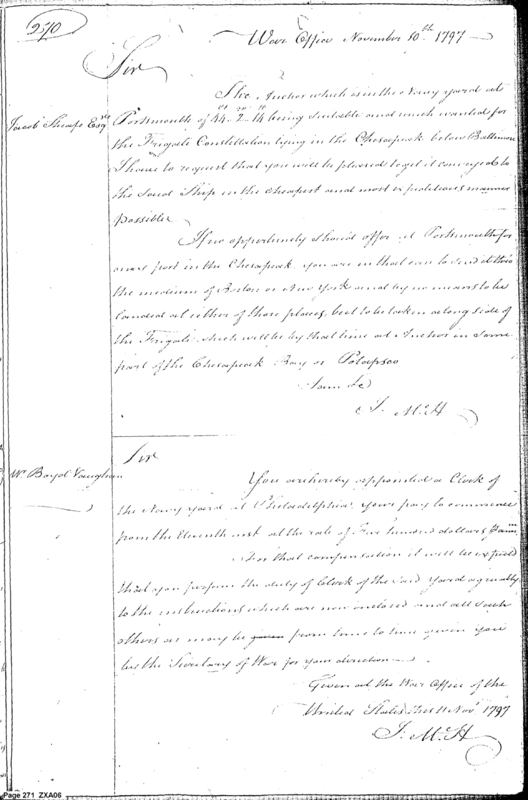 270
War Office November 10th 1797
Sir
Jacob Sheafe Esqre
The Anchor which is in the Navy yard at
Portsmouth of 44-2-14 being suitable and much wanted for
the Frigate Constellation lying in the Chesapeak below Baltimore
I have to request that you will be pleased to get it conveyed to
the said Ship in the cheapest and most expeditious manner
possible
If no opportunity should offer at Portsmouth for
any port in the Chesapeak you are in that case to send it thro
the medium of Boston or New York and by no means to be
landed at either of those places, but to be taken along side of
the Frigate which will be by that time at Anchor in some
part of the Chesapeak Bay or Patapsco
I am &c
J. McH
Sir
Mr Boyol Vaughan
You are hereby appointed a Clerk of
the Navy yard at Philadelphia your pay to commence
from the Eleventh inst at the rate of Five hundred dollars
For that compensation it will be expected
that you perform the duty of Clerk of the said yard agreeably
to the instructions which are now enclosed and all such
others as may be given from time to time given you
by the Secretary of War for your direction
Given at the War Office of the
United States this 11 Novr 1797
J. McH
Page 271 ZXA06